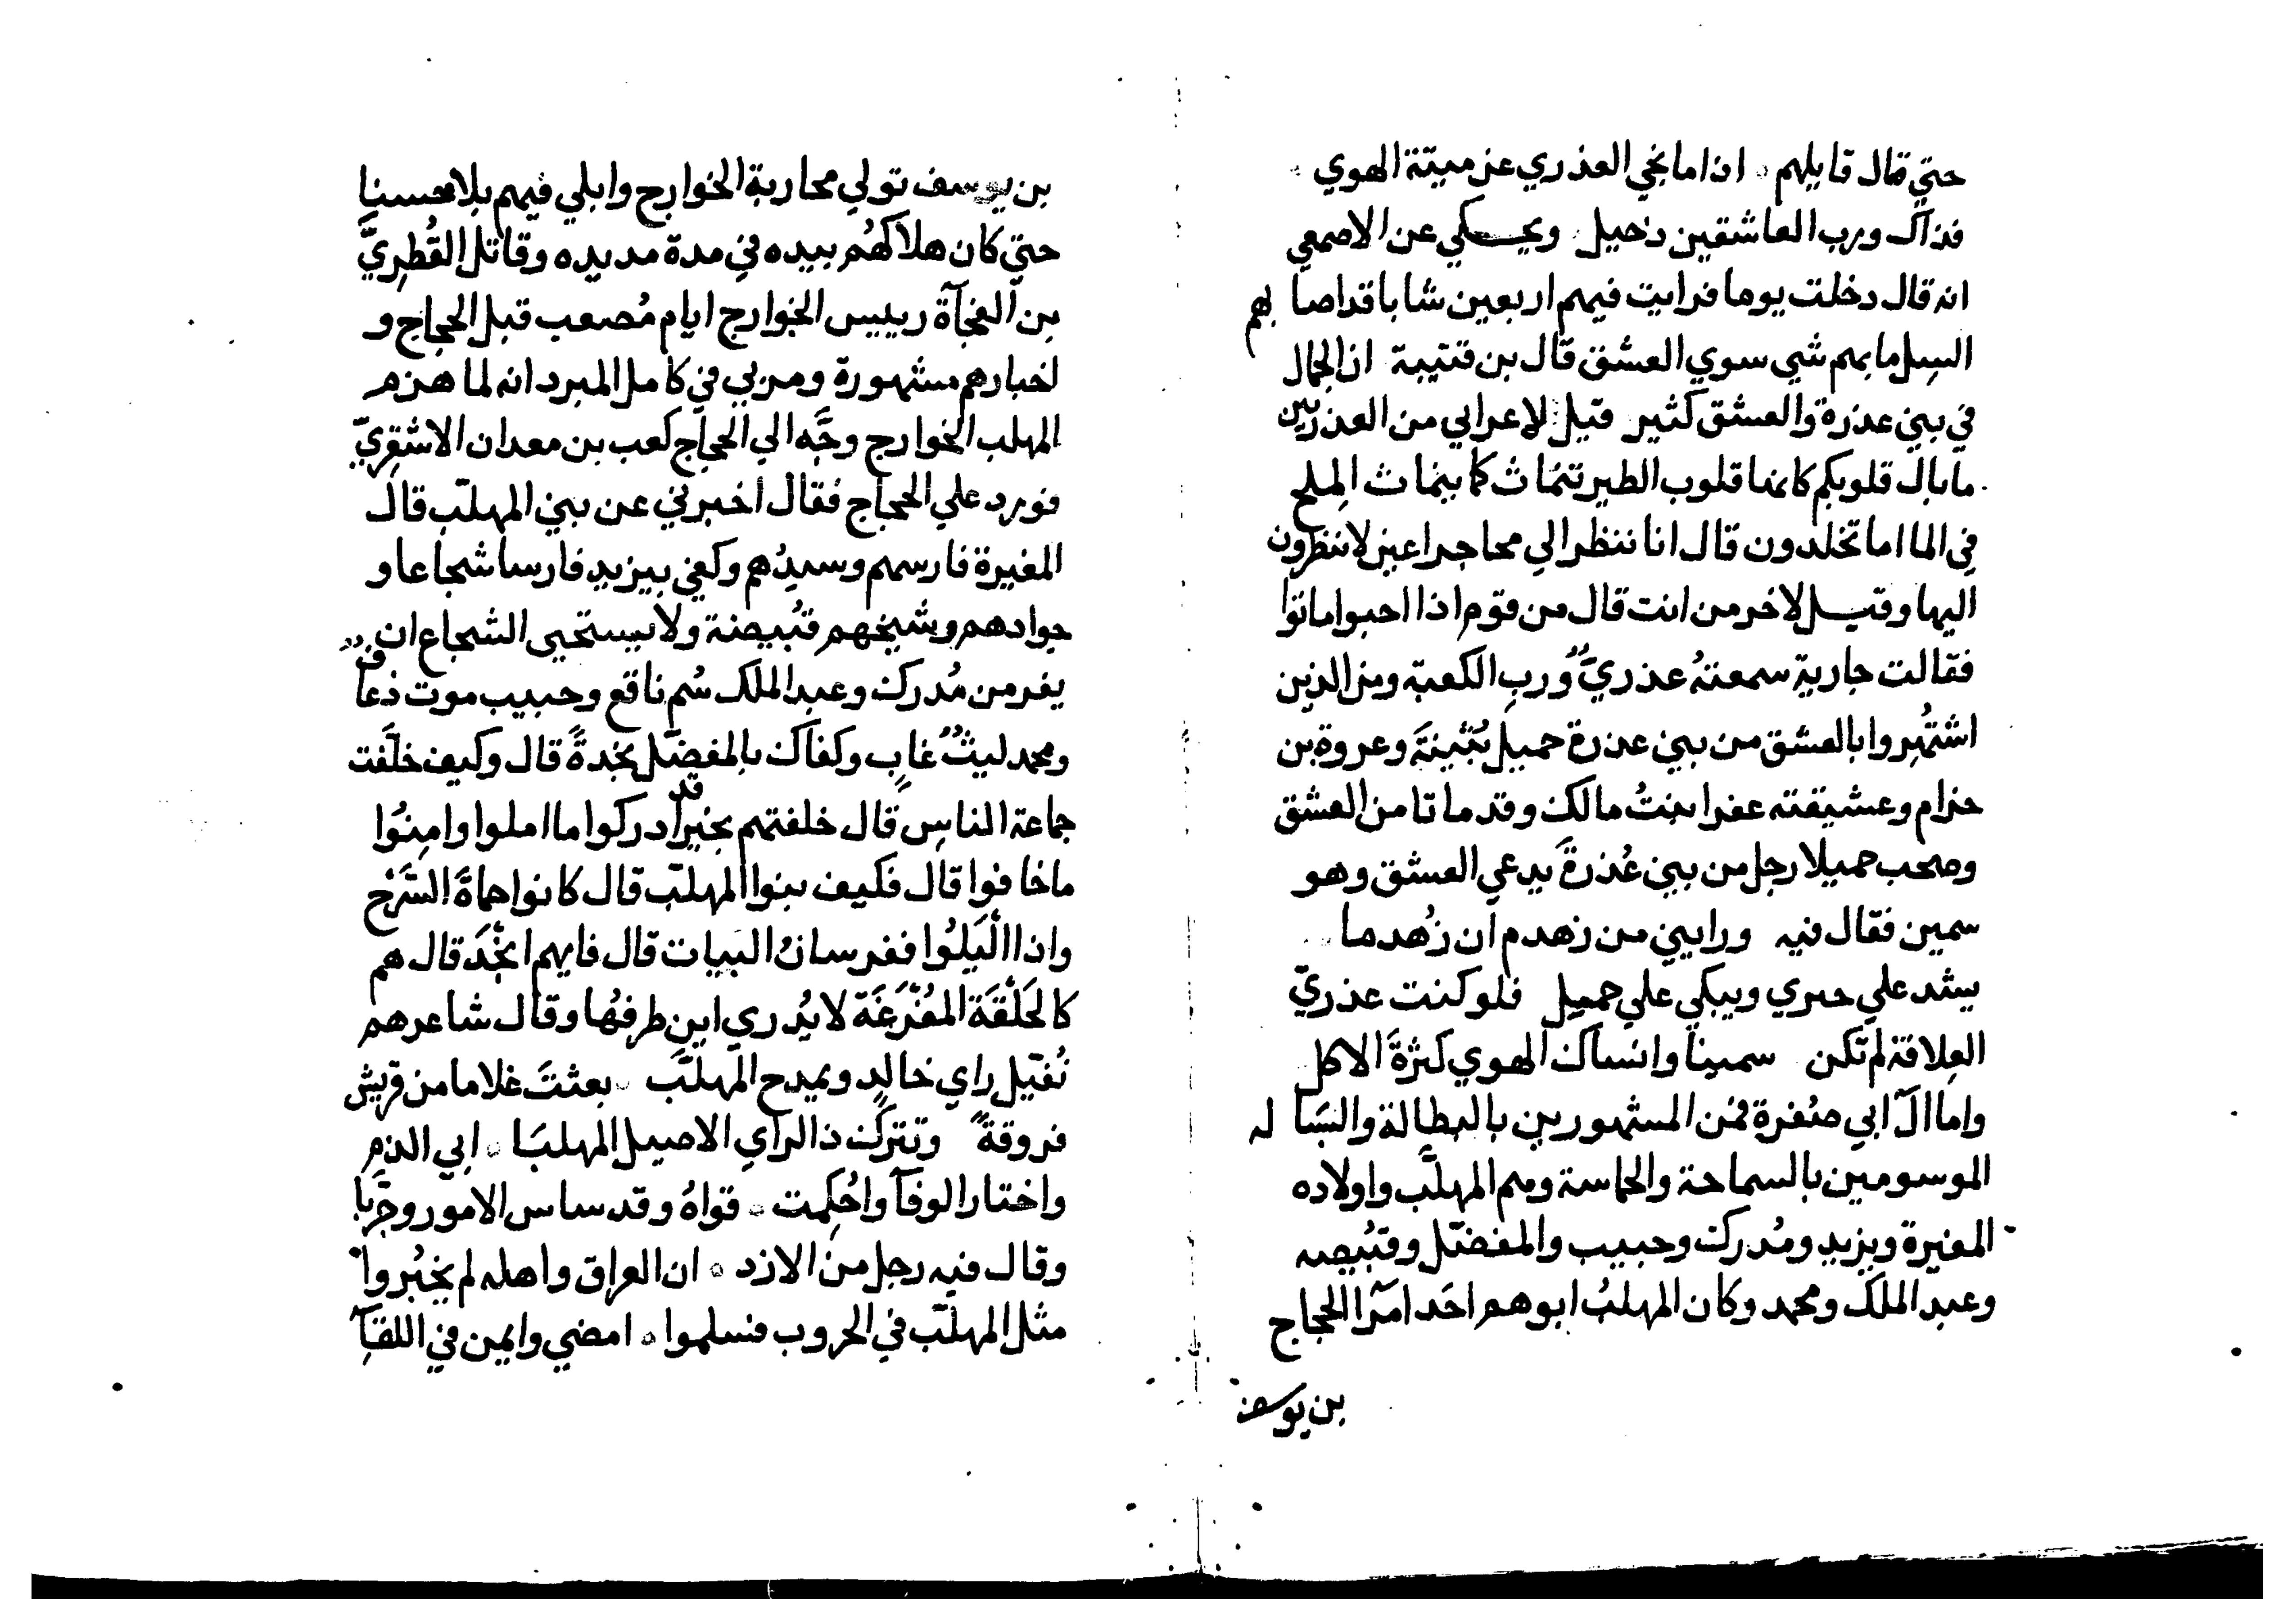 حتي قال قايلهم ۰ اذا ما نجي العذري عن ميتة الهوي
فذاك ورب العاشقين دخيل ۰ ويحكي عن الاصمعي
انه قال دخلت يوما فرايت فيهم اربعين شابا قد اصا بهم
السل ما بهم شي سوي العشق قال بن قتيبة ان الجمال
في بني عذرة والعشق كثير قيل لاعرابي من العذريين
ما بال قلوبكم كانها قلوب الطير تنماث كما ينماث الملح
في الما اما تخلدون قال انا ننظر الي محاجر اعين لا تنظرون
اليها وقيل لاخر من انت قال من قوم اذا احبوا ماتوا
فقالت جارية سمعته عذريٌ ورب الكعبة ومن الذين
اشتُهِروا بالعشق من بني عذرة جميل بُثينةَ وعروة بن
حزام وعشيقته عفرا بنتُ مالك وقد ماتا من العشق
وصحب جميلا رجل من بني عُذرةَ يدعي العشق وهو
سمين فقال فيه ورابني من زهدم ان زُهدما
يشد علي خبزي ويبكي علي جميل فلو كنت عذريّ
العِلاقة لم تكن سمينا وانساك الهوي كثرةَ الاكل
واما آل ابي صفرة فمن المشهورين بالبطالة والبسا له
الموسومين بالسماحة والحماسة وهم المهلَّب واولاده
المغيرة ويزيد ومُدرك وحبيب والمفضّل وقبُيصه
وعبد الملك ومحمد وكان المهلبُ ابوهم احَد امرآ الحجاج
بن يوسف
بن يوسف تولي محاربة الخوارج وابلي فيهم بلا حسنا
حتي كان هلاكهُم بيده في مدة مديده وقاتل القُطرِيّ
بن الفجآة رييس الخوارج ايام مُصعب قبل الحجاج و
اخبارهم مشهورة ومر بي في كامل المبرد انه لما هزم
المهلب الخوارج وجَّه الي الحجاج كعب بن معدان الاشقِريّ
فورد علي الحجاج فقال اخبرني عن بني المهلّب قال
المغيرة فارسهم وسيدُهم وكفي بيزيد فارسا شجاعا و
جوادهم وشيخهم قبُيصة ولا يستحيى الشجاع ان
يفر من مُدرك وعبد الملك سُم ناقع وحبيب موت ذعاف
ومحمد ليثُ غابٍ وكفاك بالمفضّل نجدةً قال وكيف خلّفت
جماعة الناس قال خلفتهم بخير قد ادركوا ما املوا وامِنُوا
ما خافوا قال فكيف بنوا المهلّب قال كانوا حماةَ السَّرْح
واذا الْيَلُوا ففرسانُ البيات قال فايهم انْجَد قال هم
كالحَلْقَة المُفْرَغَة لا يُدري اين طرفُها وقال شاعرهم
نُفيّل راي خالدٍ ويمدح المهلَّب ۰ بعثتَ غلاما من قريش
فروقةً وتترك ذا الراي الاصيل المهلبَا ۰ ابي الذم
واختار الوفآ واحُكِمت ۰ قواهُ وقد ساس الامور وجرَّبا
وقال فيه رجل من الازد ۰ ان العراق واهله لم يخبُروا
مثل المهلّب في الحروب فسلموا ۰ امضي وايمن في اللقآ